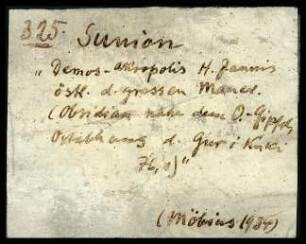 325. Sunion
"Demos-akropolis H. Jannis
östl. d. grossen Mauer.
(Obsidian nahe dem O.-Gipfel,
Ostabhang d. Gur i
76,1)"
(Möbius 1984)